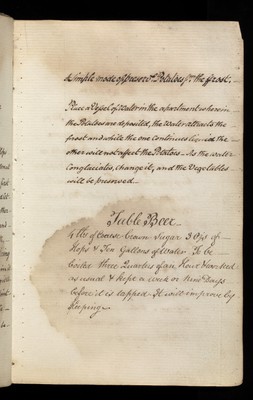 A Simple mode of preserv.g Potatoes f.m the frost.
Place a Vessel of Water in the apartment wherein
the Potatoes are deposited, the Water attracts the
frost and while the one continues liquid the
other will not affect the Potatoes. As the water
Conglaciates, change it, and the Vegetables
will be preserved.
Table Beer
4 lbs of Coarse brown Sugar 3 Ozs of
Hops & Ten Gallons of Water To be
boil'd three Quarters of an Hour & work'd
as usual & kept a week or Nine Days
before it is tapped - It will improve by
Keeping